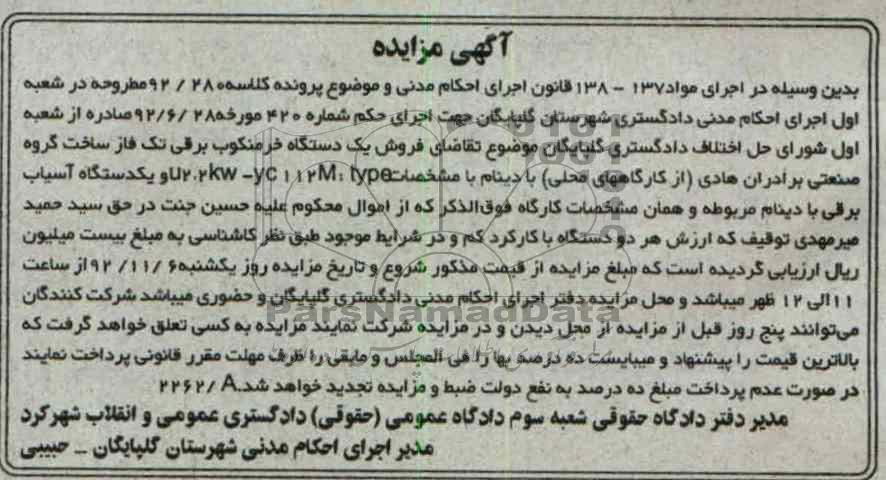 آگهی مزایده
بدین وسیله در اجرای مواد۱۳۷ - ۱۳۸ قانون اجرای احکام مدنی و موضوع پرونده کلاسه۲۸۰ / ۹۲مطروحه در شعبه
اول اجرای احکام مدنی دادگستری شهرستان گلپایگان جهت اجرای حکم شماره ۴۲۰ مورخه۹۲/۶/۲۸صادره از شعبه
اول شورای حل اختلاف دادگستری گلپایگان موضوع تقاضای فروش یک دستگاه خرمنکوب برقی تک فاز ساخت گروه
صنعتی برادران هادی (از کارگاههای محلی) با دینام با مشخصات۲.۲kw -yc ۱۱۲M: type و یکدستگاه آسیاب
برقی با دینام مربوطه و همان مشخصات کارگاه فوق‌الذکر که از اموال محکوم علیه حسین جنت در حق سید حمید
میرمهدی توقیف که ارزش هر دو دستگاه با کارکرد کم و در شرایط موجود طبق نظر کاشناسی به مبلغ بیست میلیون
ریال ارزیابی گردیده است که مبلغ مزایده از قیمت مذکور شروع و تاریخ مزایده روز یکشنبه۶ /۱۱/ ۹۲از ساعت
۱۱الی ۱۲ ظهر میباشد و محل مزایده دفتر اجرای احکام مدنی دادگستری گلپایگان و حضوری میباشد شرکت کنندگان
می‌توانند پنج روز قبل از مزایده از محل دیدن و در مزایده شرکت نمایند مزایده به کسی تعلق خواهد گرفت که
بالاترین قیمت را پیشنهاد و میبایست ده درصد بها را فی المجلس و مابقی را ظرف مهلت مقرر قانونی پرداخت نمایند
در صورت عدم پرداخت مبلغ ده درصد به نفع دولت ضبط و مزایده تجدید خواهد شد.۲۲۶۲/A
مدیر دفتر دادگاه حقوقی شعبه سوم دادگاه عمومی (حقوقی) دادگستری عمومی و انقلاب شهرکرد
مدیر اجرای احکام مدنی شهرستان گلپایگان _ حبیبی
ParsNamadData